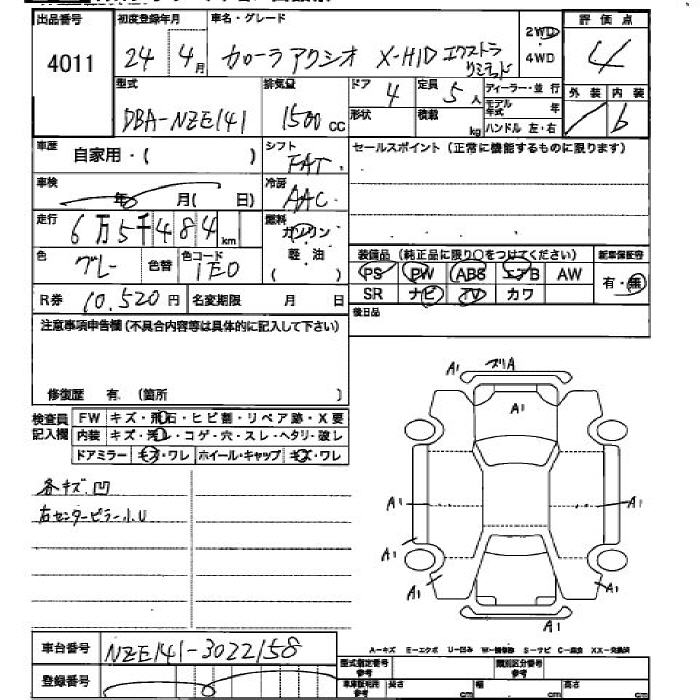 出品番号 初度登録年月 車名・グレード 2WD 評価点
4011 24年 4月 カローラアクシオ X-HID エクストラ リミテッド 4WD 4
型式 排気量 ドア 定員 ディーラー・並行 外装 内装
DBA-NZE141 1500cc 4 5人 モデル年式 年 b
形状 積載 kg ハンドル 左・右
車歴 自家用・( ) シフト FAT セールスポイント(正常に機能するものに限ります)
車検 年 月( 日) 冷房 AAC
走行 6万5千484km 燃料 ガソリン
色 グレー 色替 色コード 1E0 軽・油 ( ) 装備品(純正品に限り○をつけてください) 新車保証書
PS PW ABS エアB AW 有・無
R券 10,520円 名変期限 月 日 SR ナビ TV カワ
注意事項申告欄(不具合内容等は具体的に記入して下さい) 後日品
修復歴 有 (箇所 )
検査員記入欄 FW キズ・飛石・ヒビ割・リペア跡・X要
内装 キズ・汚レ・コゲ・穴・スレ・ヘタリ・破レ
ドアミラー キズ・ワレ ホイール・キャップ キズ・ワレ
各キズ.凹
右センターピラー小U
A1 ズリA
A1
A1 A1 A1
A1
A1 A1
車台番号 NZE141-3022158
A-キズ E-エクボ U-凹み W-補修跡 S-サビ C-腐蝕 XX-交換済
登録番号 型式指定番号 参考 類別区分番号 参考
車庫証明用 参考 長さ cm 幅 cm 高さ cm